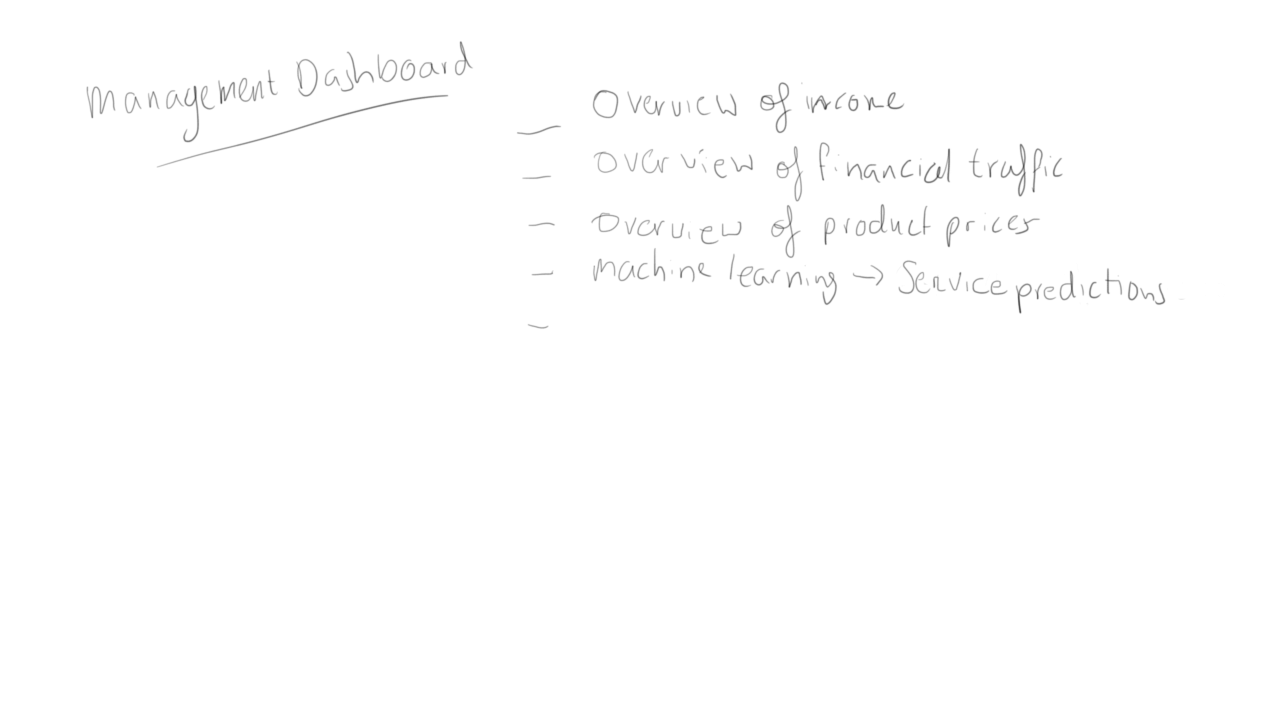 Management Dashboard
— Overview of income
— Overview of financial traffic
— Overview of product prices
— machine learning → Service predictions
—